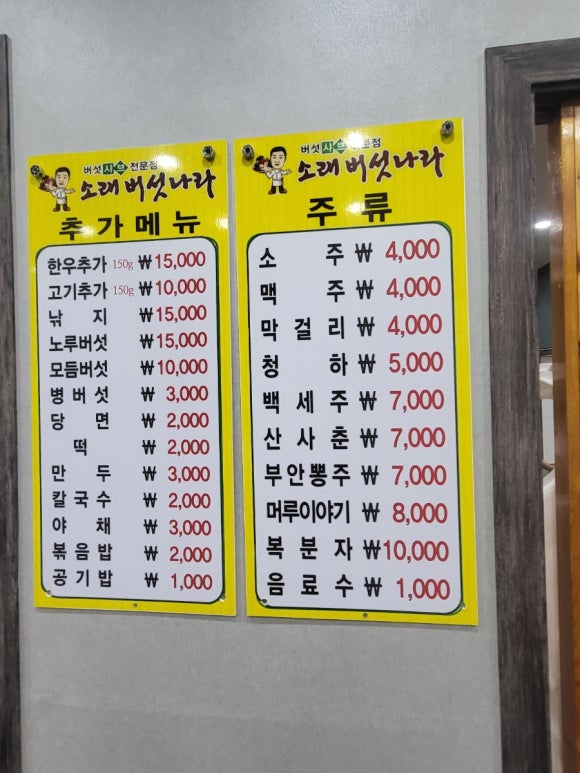 버섯 샤브 전문점
소래버섯나라
추가메뉴
한우추가 150g ₩15,000
고기추가 150g ₩10,000
낚지 ₩15,000
노루버섯 ₩15,000
모듬버섯 ₩10,000
병버섯 ₩3,000
당면 ₩2,000
떡 ₩2,000
만두 ₩3,000
칼국수 ₩2,000
야채 ₩3,000
볶음밥 ₩2,000
공기밥 ₩1,000
버섯 샤브 전문점
소래버섯나라
주류
소주 ₩4,000
맥주 ₩4,000
막걸리 ₩4,000
청하 ₩5,000
백세주 ₩7,000
산사춘 ₩7,000
부안뽕주 ₩7,000
머루이야기 ₩8,000
복분자 ₩10,000
음료수 ₩1,000